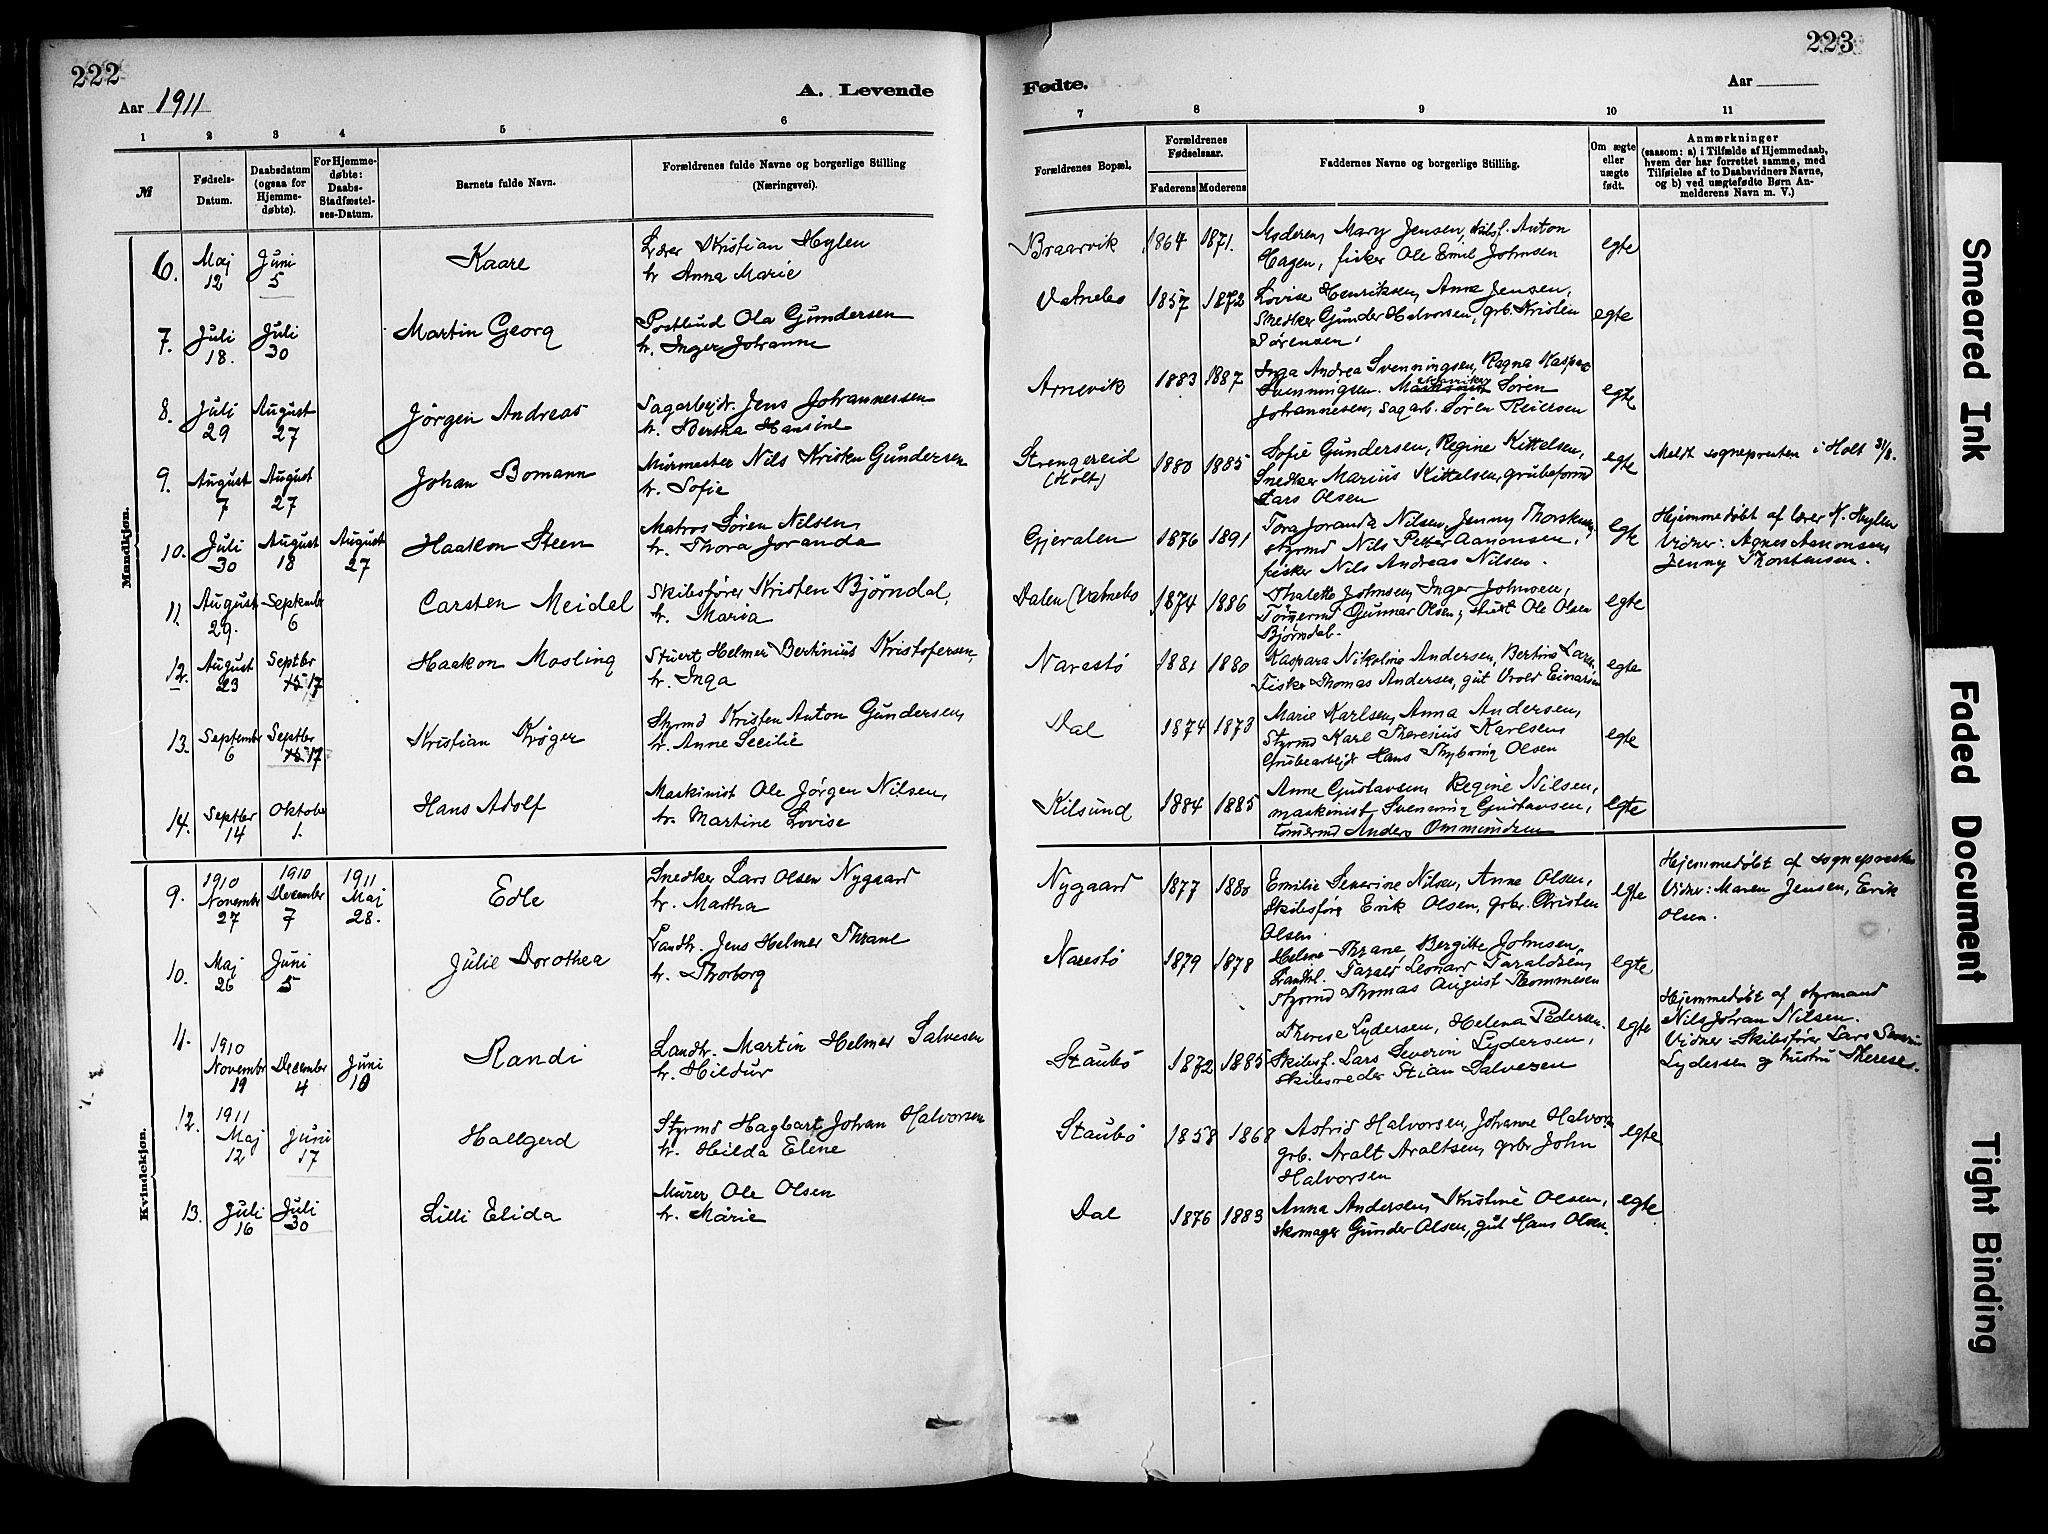 222
Aar 1911
A. Levende
1 2 3 4 5 6
№
Fødsels-
Datum.
Daabsdatum
(ogsaa for
Hjemme-
døbte).
For Hjemme-
døbte:
Daabs-
Stadfæstel-
ses-Datum.
Barnets fulde Navn.
Forældrenes fulde Navne og borgerlige Stilling
(Næringsvei).
Mandkjøn.
6. Maj 12 Juni 5 Kaare
Lærer Kristian Hylen
h. Anna Marie
7. Juli 18. Juli 30 Martin Georg
Postbud Ola Gundersen
h. Inger Johanne
8. Juli 29 August 27 Jörgen Andreas
Sagarbejdr. Jens Johannessen
h. Bertha Hansine
9. August 7 August 27 Johan Bomann
Murmester Nils Kristen Gundersen
h. Sofie
10. Juli 30 August 18 August 27 Haakon Steen
Matros Søren Nilsen,
h. Thora Joranda
11. August 29. September 6 Carsten Meidel
Skibsfører Kristen Bjørndal,
h. Maria
12. August 23 Septbr 17 Haakon Mosling
Stuert Helmer Bertinius Kristofersen,
h. Inga
13. September 6 Septbr 17 Kristian Krøger
Styrmd Kristen Anton Gundersen,
h. Anne Secilie
14. Septbr 14 Oktober 1. Hans Adolf
Maskinist Ole Jørgen Nilsen,
h. Martine Lovise
Kvindekjøn.
9. 1910 November 27 1910 December 7 1911 Maj 28. Edle
Snedker Lars Olsen Nygaard
h. Martha
10. Maj 26 Juni 5 Julie Dorothea
Landh. Jens Helmer Thrane
h. Thorborg
11. 1910 Novembr 19 December 4 Juni 10 Randi
Landh. Martin Helmer Salvesen
h. Hildur
12. 1911 Maj 12 Juni 17 Hallgerd
Styrmd Hagbart Johan Halvorsen
h. Hilda Elene
13. Juli 16 Juli 30 Lilli Elida
Murer, Ole Olsen
h. Marie
223
Fødte.
Aar
7 8 9 10 11
Forældrenes Bopæl.
Forældrenes
Fødselsaar.
Faderens Moderens
Faddernes Navne og borgerlige Stilling.
Om ægte
eller
uægte
født.
Anmærkninger
(saasom: a) i Tilfælde af Hjemmedaab,
hvem der har forrettet samme, med
Tilføielse af to Daabsvidners Navne,
og b) ved uægtefødte Børn An-
melderens Navn m. V.)
Braarvik 1864 1871. Moderen, Mary Jensen, skibsf. Anton
Hagen, fisker Ole Emil Johnsen egte
Vatnebo 1857 1872 Lovise Henriksen, Anna Jensen,
Snedker Gunder Halvorsen, grb. Kristen
Sørensen egte
Arnevik 1883 1887 Inga Andrea Svenningsen, Ragna Kaspara
Svenningsen. Søren
Johannesen, sagarb. Søren Reiersen egte
Strengereid
(Holt) 1880 1885 Sofie Gundersen, Regine Kittelsen,
Snedker Marius Kittelsen, grubeformd
Lars Olsen egte Meldt sognepresten i Holt 31/8.
Gjeralen 1876 1891 Tora Joranda Nilsen, Jenny Thorstensen,
styrmd Nils Petter Aanonsen,
fisker Nils Andreas Nilsen. egte
Hjemmedøbt af lærer K. Hylen
Vidner: Agnes Aanonsen,
Jenny Thorstensen.
Dalen (Vatnebo 1874 1886 Thalette Johnsen, Inger Johnsen,
Tømermd Gunnar Olsen, stuert Ole Olsen
Bjørndal. egte
Narestø 1881 1880 Kaspara Nikoline Andersen, Bertine Larsen
Fisker Thomas Andersen, gut Vrold Einarsen egte
Dal 1874 1873 Marie Karlsen, Anna Andersen,
Styrmd Karl Theresius Karlsen,
Grubearbejdr Hans Thyboring Olsen egte
Kilsund 1884 1885 Anne Gustavsen, Regine Nilsen,
maskinist Svenning Gustavsen,
tømermd Anders Ommundsen egte
Nygaard 1877 1880 Emilie Severine Nilsen, Anne Olsen,
Skibsfører Erik Olsen, grbr. Christen
Olsen. egte
Hjemmedøbt af sognepresten
Vidner: Maren Jensen, Erik
Olsen.
Narestø 1879 1878 Helene Thrane, Bergitte Johnsen,
Landh. Taralt Leonard Taraldsen,
Styrmd Thomas August Thommesen egte
Staubø 1872 1885 Therese Lydersen, Helena Pedersen.
Skibsf. Lars Severin Lydersen,
Skibsreder Stian Salvesen egte
Hjemmedøbt af styrmand
Nils Johan Nilsen.
Vidner Skibsfører Lars Severin
Lydersen og hustru Therese.
Staubø 1858 1868 Astrid Halvorsen, Johanne Halvorsen
grb. Aralt Araltsen, grbr John
Halvorsen egte
Dal 1876 1883 Anna Andersen, Kristine Olsen,
skomager Gunder Olsen, gut Hans Olsen. egte
Smeared Ink
Faded Document
Tight Binding